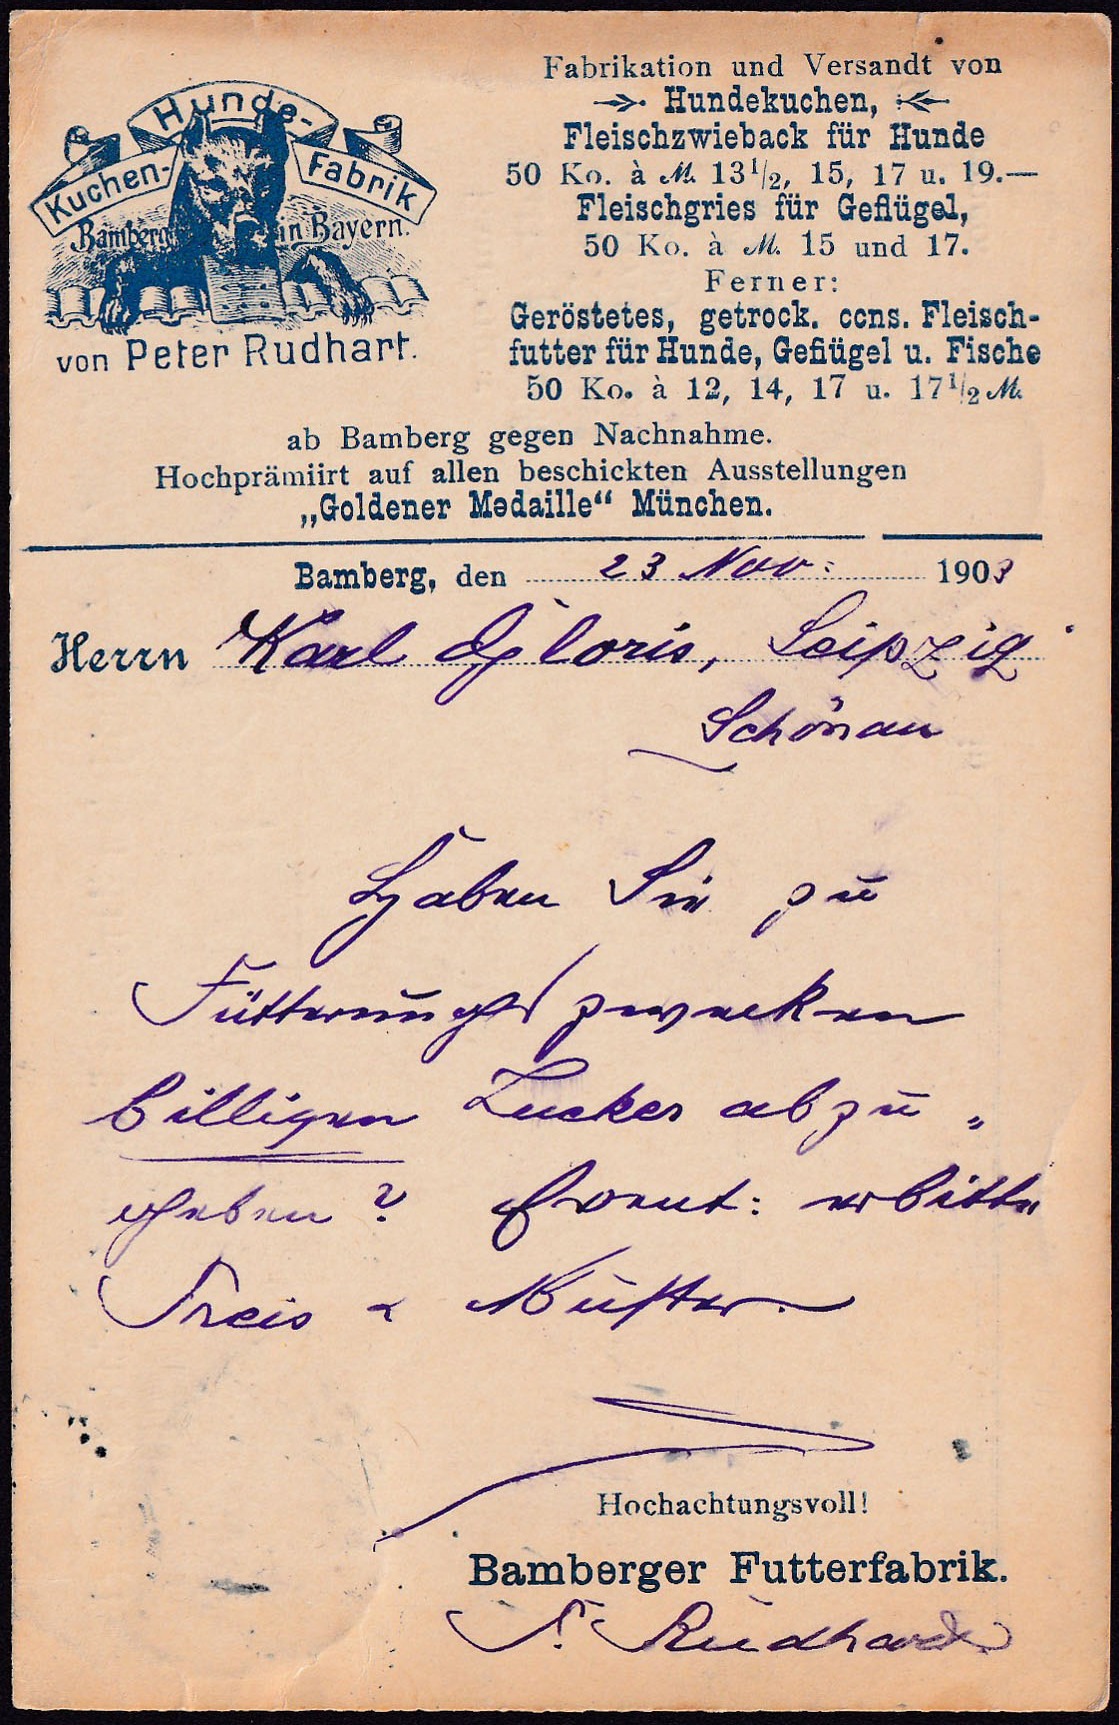 Hunde-
Kuchen-
Fabrik
Bamberg in Bayern.
von Peter Rudhart.
Fabrikation und Versandt von
Hundekuchen,
Fleischzwieback für Hunde
50 Ko. à M. 13 1/2, 15, 17 u. 19.—
Fleischgries für Geflügel,
50 Ko. à M. 15 und 17.
Ferner:
Geröstetes, getrock. cons. Fleisch-
futter für Hunde, Geflügel u. Fische
50 Ko. à 12, 14, 17 u. 17 1/2 M.
ab Bamberg gegen Nachnahme.
Hochprämiirt auf allen beschickten Ausstellungen
„Goldener Medaille“ München.
Bamberg, den 23 Nov: 1903
Herrn Karl Gloris, Leipzig
Schönau
Haben Sie zu
Fütterungszwecken
billigen Zucker abzu„
geben? Event: erbitte
Preis & Muster.
Hochachtungsvoll!
Bamberger Futterfabrik.
P. Rudhardt